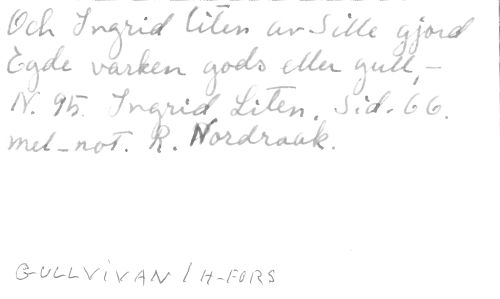 Och Ingrid liten av Sille gjord
Egde varken gods eller gull, –
N. 95. Ingrid Liten. Sid. 66.
mel-not. R. Nordraak.
GULLVIVAN / H-FORS